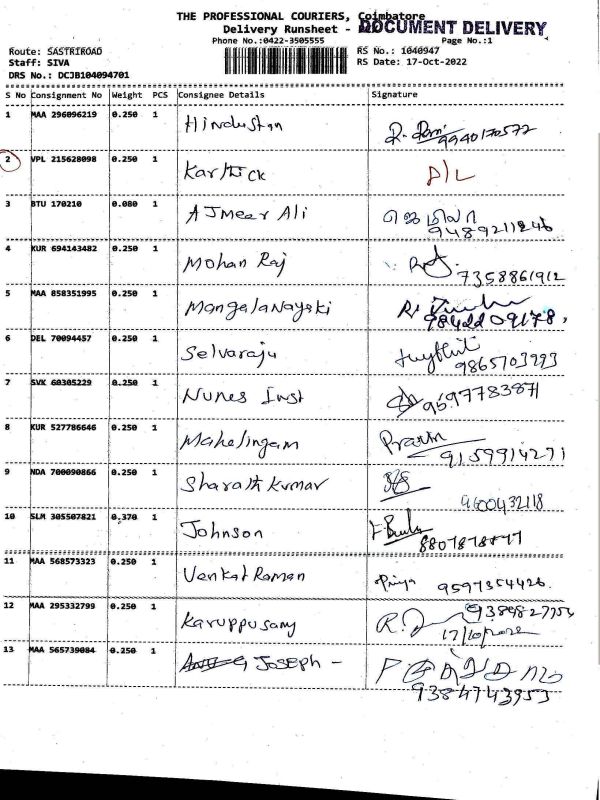 THE PROFESSIONAL COURIERS, Coimbatore
Delivery Runsheet - DOCUMENT DELIVERY
Phone No.:0422-3505555 Page No.:1
Route: SASTRIROAD RS No.: 1040947
Staff: SIVA RS Date: 17-Oct-2022
DRS No.: DCJB104094701
S No Consignment No Weight PCS Consignee Details Signature
1 MAA 296096219 0.250 1 Hindustan 9940170572
2 VPL 215628098 0.250 1 Karthick D/L
3 BTU 170210 0.080 1 AJMeer Ali 9489211246
4 KUR 694143482 0.250 1 Mohan Raj 7358861912
5 MAA 858351995 0.250 1 Mangalanayaki 9842209178,
6 DEL 70094457 0.250 1 Selvaraju 9865703293
7 SVK 60305229 0.250 1 Nunes Inst 9597783871
8 KUR 527786646 0.250 1 Mahelingam Pravin
9159914271
9 NDA 700090866 0.250 1 Sharath Kumar
9600432118
10 SLM 305507821 0.370 1 Johnson
11 MAA 568573323 0.250 1 Venkat Raman Priya 9597354426
12 MAA 295332799 0.250 1 Karuppusamy
17/10/2022
13 MAA 565739084 0.250 1 JOSEPH -
9384743953